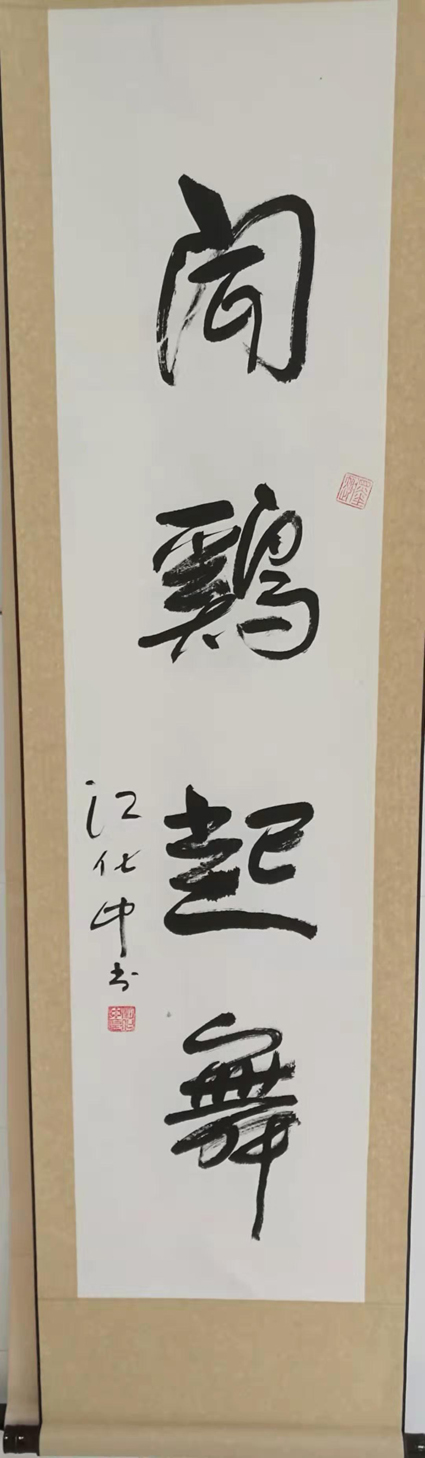 闻鷄起舞
江化中书